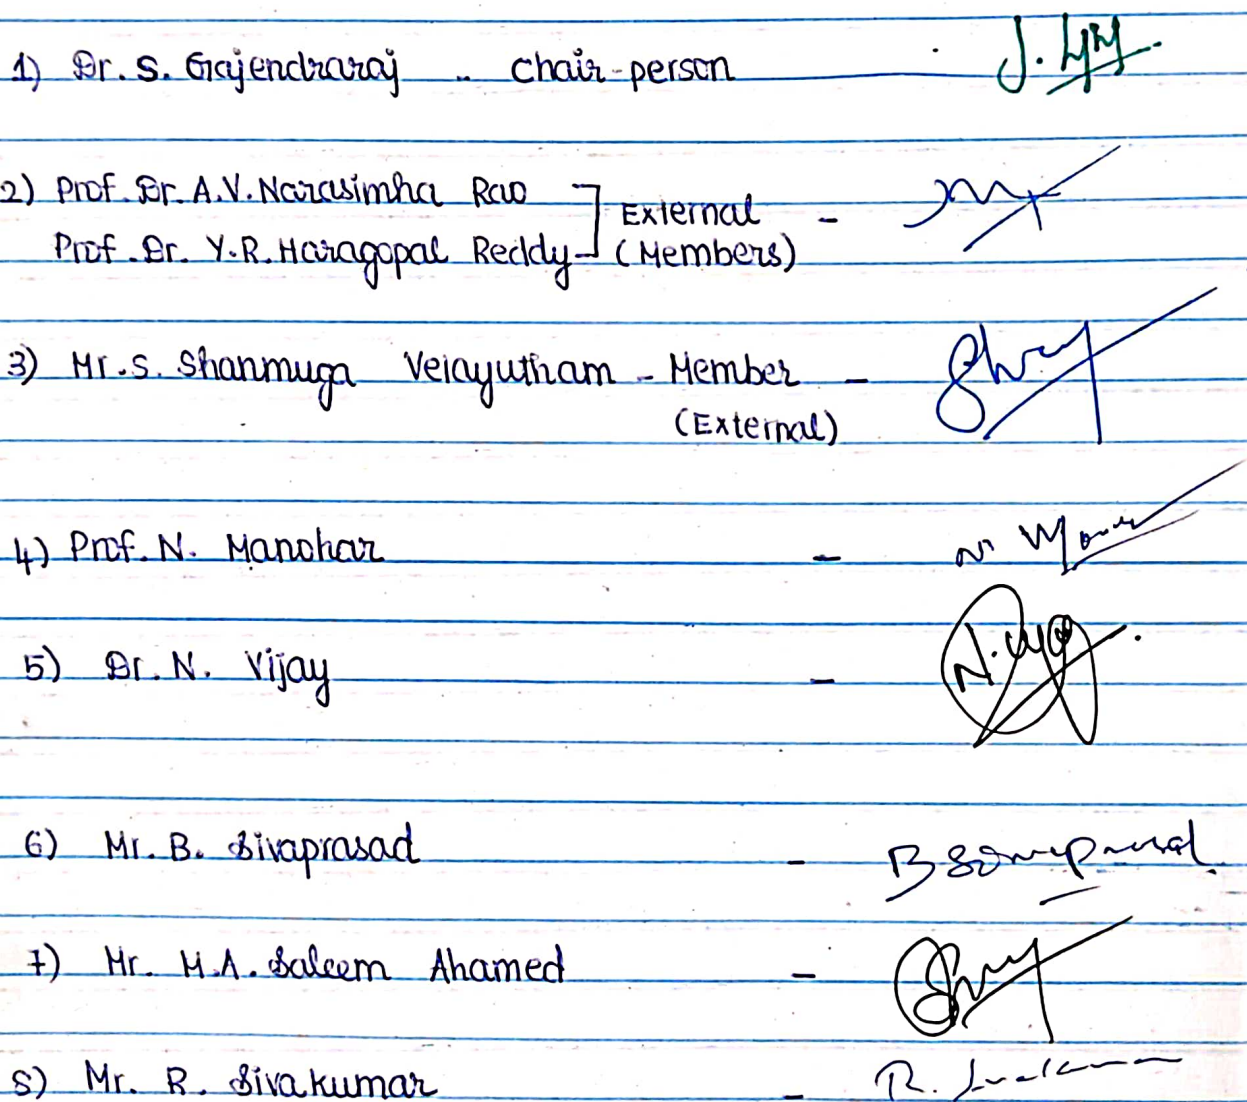 1) Dr. S. Gajendraraj - Chair-person
2) Prof. Dr. A.V. Narasimha Rao
Prof. Dr. Y.R. Haragopal Reddy
External
(Members) -
3) Mr. S. Shanmuga Velayutham - Member -
(External)
4) Prof. N. Manohar -
5) Dr. N. Vijay -
6) Mr. B. Sivaprasad - B Sivaprasad
7) Mr. M.A. Saleem Ahamed -
8) Mr. R. Sivakumar - R. Sivakumar